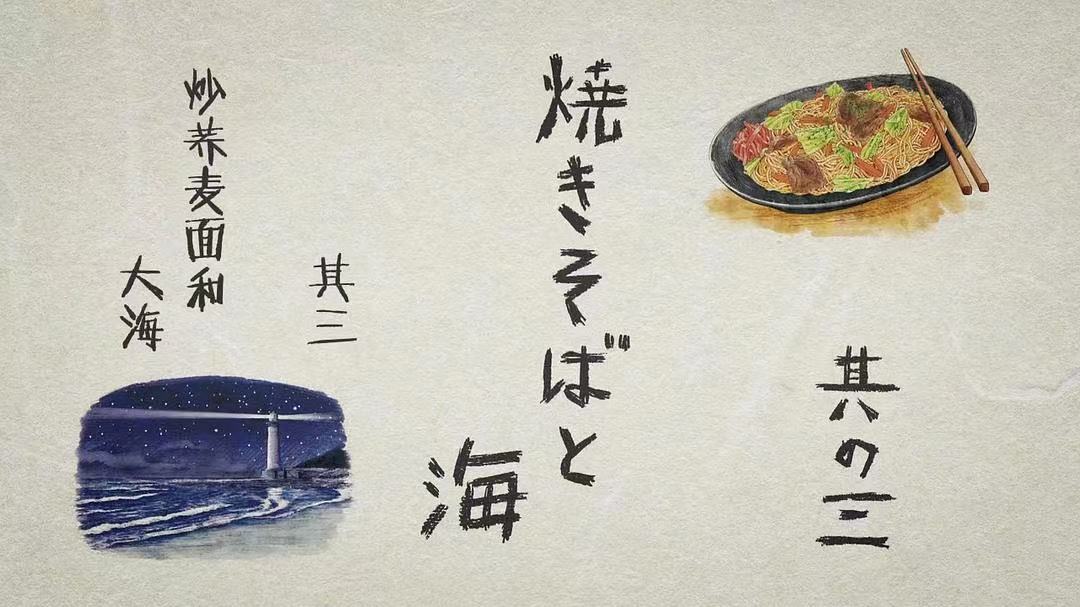 其の三
焼きそばと
海
其三
炒荞麦面和
大海